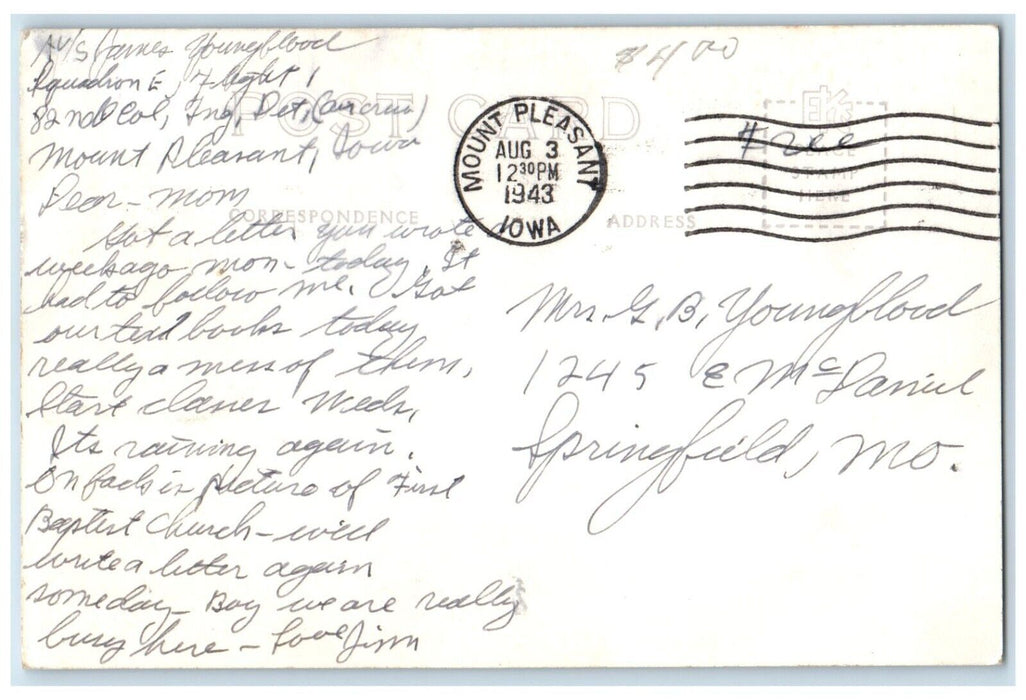 A/S James Youngblood
Squadron E, Flight 1
82nd Col, Tng, Det, (aircrew)
Mount Pleasant, Iowa
Dear - Mom
Got a letter you wrote
weeks ago mon - today. It
had to follow me. Got
our text books today
really a mess of them.
Start classes Weds,
Its raining again.
On back is picture of First
Baptist Church - will
write a letter again
someday - Boy we are really
busy here - Love Jim
$4 00
POST CARD
MOUNT PLEASANT
AUG 3
12 30 PM
1943
IOWA
EKC
$200
PLACE
STAMP
HERE
CORRESPONDENCE
ADDRESS
Mrs. G. B. Youngblood
1245 E McDaniel
Springfield, Mo.